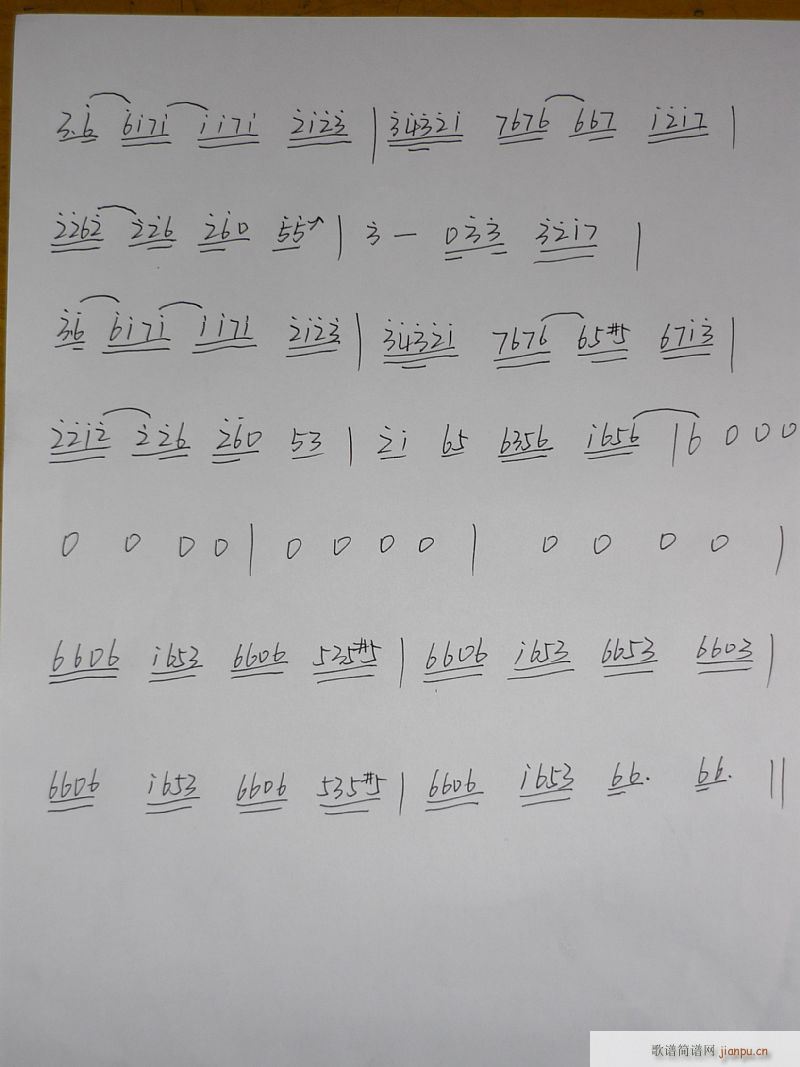 3. 6̇ 6i̇7i̇ i̇i̇7i̇ 2̇i̇2̇3̇ | 3̇4̇3̇2̇i̇ 7676 667 i̇2̇i̇7 |
2̇2̇62̇ 2̇2̇6 2̇60 5̇5̇ | 3̇ — 03̇3̇ 3̇2̇i̇7 |
3̇6̇ 6i̇7i̇ i̇i̇7i̇ 2̇i̇2̇3̇ | 3̇4̇3̇2̇i̇ 7676 65#5 67i̇3̇ |
2̇2̇i̇2̇ 2̇2̇6 2̇60 53 | 2̇i̇ 65 6356 i̇656 | 6 0 0 0
0 0 0 0 | 0 0 0 0 | 0 0 0 0 |
6606 i̇653 6606 535#5 | 6606 i̇653 6653 6603 |
6606 i̇653 6606 535#5 | 6606 i̇653 66. 66. ||
歌谱简谱网 jianpu.cn